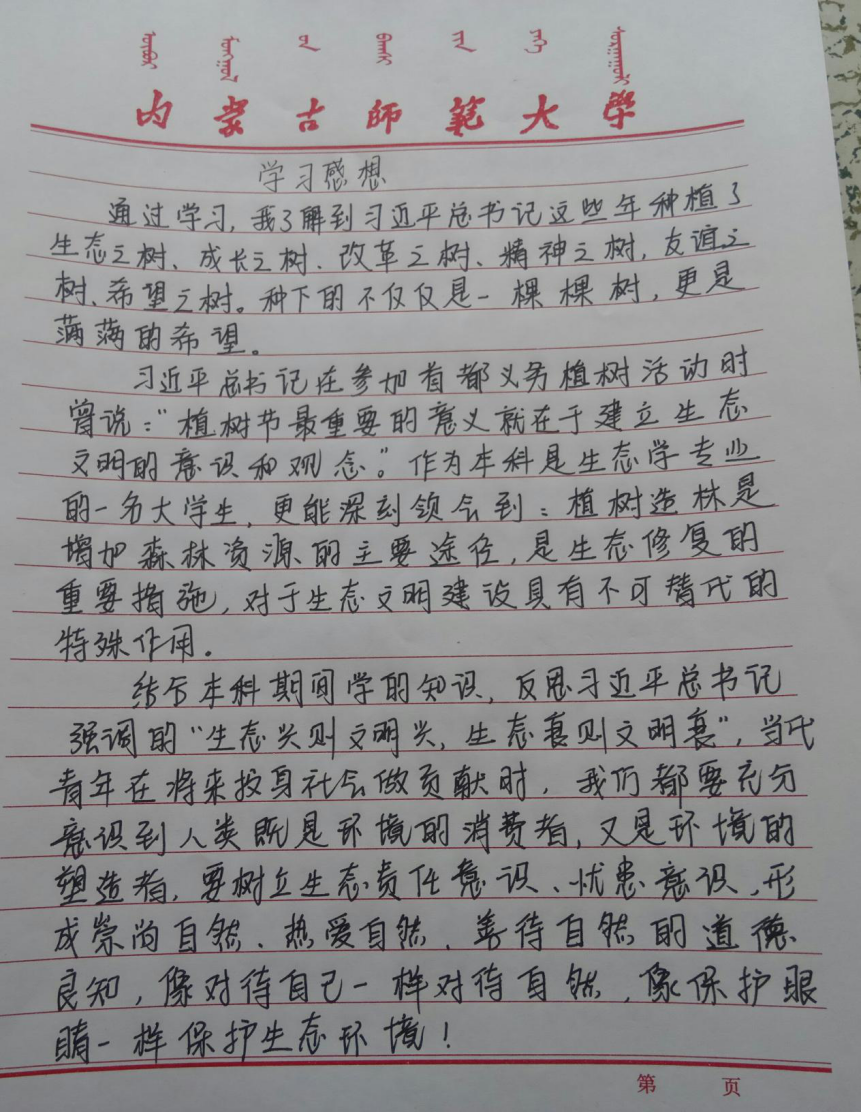 内蒙古师范大学
学习感想
通过学习,我了解到习近平总书记这些年种植了
生态之树、成长之树、改革之树、精神之树,友谊之
树、希望之树。种下的不仅仅是一棵棵树,更是
满满的希望。
习近平总书记在参加首都义务植树活动时
曾说:“植树节最重要的意义就在于建立生态
文明的意识和观念。”作为本科是生态学专业
的一名大学生,更能深刻领会到:植树造林是
增加森林资源的主要途径,是生态修复的
重要措施,对于生态文明建设具有不可替代的
特殊作用。
结合本科期间学的知识,反思习近平总书记
强调的“生态兴则文明兴,生态衰则文明衰”,当代
青年在将来投身社会做贡献时,我们都要充分
意识到人类既是环境的消费者,又是环境的
塑造者,要树立生态责任意识、忧患意识,形
成崇尚自然、热爱自然、善待自然的道德
良知,像对待自己一样对待自然,像保护眼
睛一样保护生态环境!
第 页